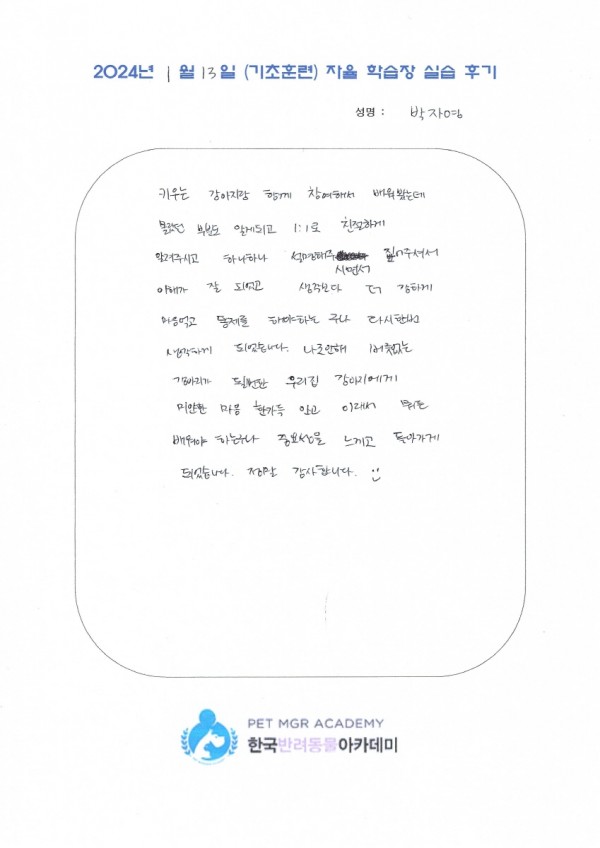 2024년 1월 13일 (기초훈련) 자율 학습장 실습 후기
성명 : 박자영
키우는 강아지랑 함께 참여해서 배워봤는데
몰랐던 부분도 알게되고 1:1로 친절하게
알려주시고 하나하나 설명해주시면서 짚어주셔서
이해가 잘 되었고 생각보다 더 강하게
마음먹고 통제를 해야하는구나 다시한번
생각하게 되었습니다. 나로인해 버릇없는
강아지가 될뻔한 우리집 강아지에게
미안한 마음 한가득 안고 이래서 뭐든
배워야 하는구나 중요성을 느끼고 돌아가게
되었습니다. 정말 감사합니다. :)
PET MGR ACADEMY
한국반려동물아카데미